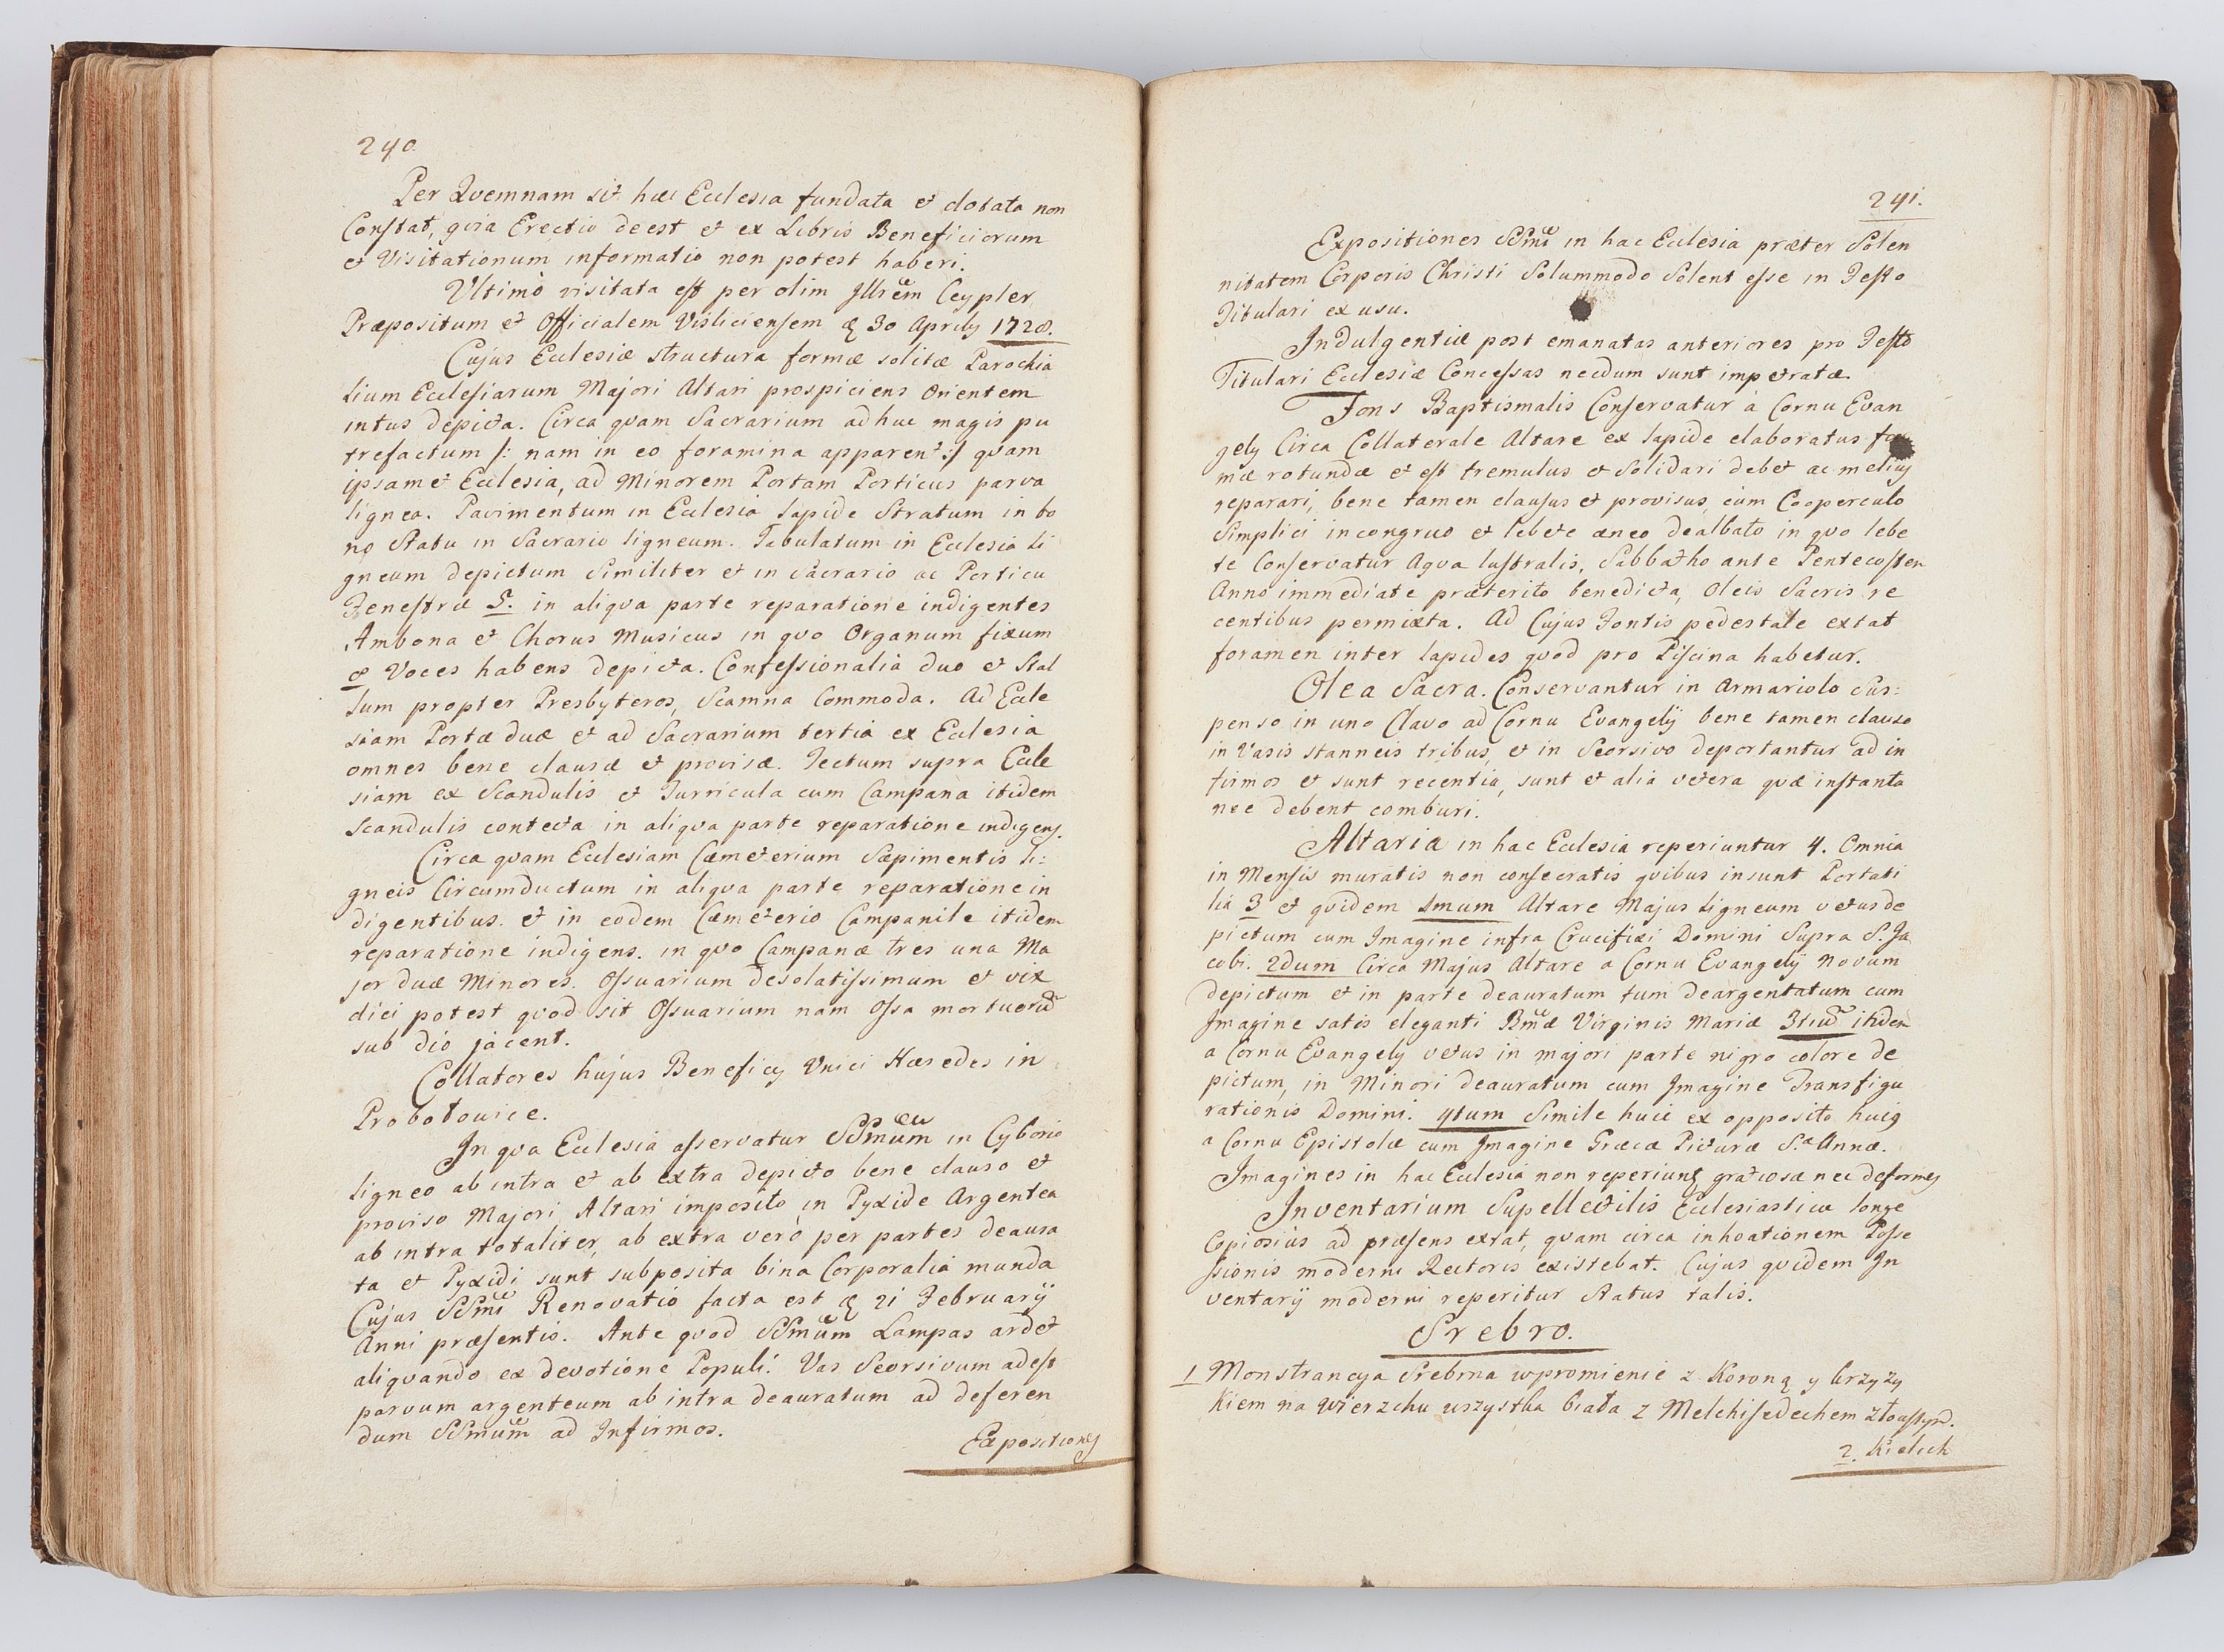 240.
Per Quemnam sit hæc Ecclesia fundata et dotata non
Constat, quia Erectio deest et ex Libris Beneficiorum
et Visitationum informatio non potest haberi.
Ultimò visitata est per olim Illrem Ceypler
Præpositum et Officialem Visliciensem d 30 Aprilis 1728.
Cujus Ecclesiæ structura formæ solitæ Parochia
lium Ecclesiarum Majori Altari prospiciens Orientem
intus depicta. Circa quam Sacrarium adhuc magis pu
trefactum /: nam in eo foramina apparent :/ quam
ipsamet Ecclesia, ad Minorem Portam Porticus parva
lignea. Pavimentum in Ecclesia lapide Stratum in bo
no Statu in Sacrario ligneum. Tabulatum in Ecclesia li
gneum depictum Similiter et in Sacrario ac Porticu
Fenestræ 5. in aliqua parte reparatione indigentes
Ambona et Chorus Musicus in quo Organum fixum
8 Voces habens depicta. Confessionalia duo et Stal
lum propter Presbyteros, Scamna Commoda. Ad Eccle
siam Portæ duæ et ad Sacrarium tertia ex Ecclesia
omnes bene clausæ et provisæ. Tectum supra Eccle
siam ex Scandulis et Turricula cum Campana itidem
Scandulis contecta in aliqua parte reparatione indigens.
Circa quam Ecclesiam Cæmeterium Sæpimentis li:
gneis Circumductum in aliqua parte reparatione in
digentibus. et in eodem Cæmeterio Campanile itidem
reparatione indigens. in quo Campanæ tres una Ma
jor duæ Minores. Ossuarium desolatissimum et vix
dici potest quod sit Ossuarium nam Ossa mortuorũ
sub dio jacent.
Collatores hujus Beneficij Unici Hæredes in
Probołowice.
In qua Ecclesia asservatur SSmum in Cyborio
ligneo ab intra et ab extra depicto bene clauso et
proviso Majori Altari imposito in Pyxide Argentea
ab intra totaliter, ab extra verò per partes deaura
ta et Pyxidi sunt subposita bina Corporalia munda
Cujus SSmi Renovatio facta est d 21 Februarij
Anni præsentis. Ante quod SSmum Lampas ardet
aliquando ex devotione Populi. Vas Seorsivum adest
parvum argenteum ab intra deauratum ad deferen
dum SSmum ad Infirmos.
Expositiones
241.
Expositiones SSmi in hac Ecclesia præter Solen
nitatem Corporis Christi Solummodo Solent esse in Festo
Titulari ex usu.
Indulgentiæ post emanatas anteriores pro Festo
Titulari Ecclesiæ Concessas necdum sunt impetratæ.
Fons Baptismalis Conservatur à Cornu Evan
gelij Circa Collaterale Altare ex lapide elaboratus for
mæ rotundæ et est tremulus et Solidari debet ac melius
reparari, bene tamen clausus et provisus, cum Cooperculo
Simplici incongruo et lebete æneo dealbato in quo lebe
te Conservatur Aqua lustralis, Sabbatho ante Pentecosten
Anno immediate præterito benedicta, Oleis Sacris re
centibus permixta. Ad Cujus Fontis pedestale extat
foramen inter lapides quod pro Piscina habetur.
Olea Sacra. Conservantur in Armariolo Sus:
penso in uno Clavo ad Cornu Evangelij bene tamen clauso
in Vasis stanneis tribus, et in Seorsivo deportantur ad in
firmos et sunt recentia, sunt et alia vetera quæ instanta
nee debent comburi.
Altaria in hac Ecclesia reperiuntur 4. Omnia
in Mensis muratis non consecratis quibus insunt Portati
lia 3 et quidem 1mum Altare Majus ligneum vetus de
pictum cum Imagine infra Crucifixi Domini Supra S. Ja
cobi. 2dum Circa Majus Altare a Cornu Evangelij Novum
depictum et in parte deauratum tum deargentatum cum
Imagine satis eleganti Bmæ Virginis Mariæ 3tiũ itidem
a Cornu Evangelij vetus in majori parte nigro colore de
pictum, in Minori deauratum cum Imagine Transfigu
rationis Domini. 4tum Simile huic ex opposito hujus
a Cornu Epistolæ cum Imagine Græcæ Picturæ S.æ Annæ.
Imagines in hac Ecclesia non reperiuntur gratiosæ nec deformes
Inventarium Supellectilis Ecclesiasticæ longe
Copiosius ad præsens extat, quam circa inhoationem Posse
ssionis moderni Rectoris existebat. Cujus quidem In
ventarij moderni reperitur Status talis.
Srebro.
1 Monstrancya Srebrna wpromienie z Koroną y krzyży
kiem na wierzchu wszystka biała z Melchisedechem złocistym.
2. Kielich